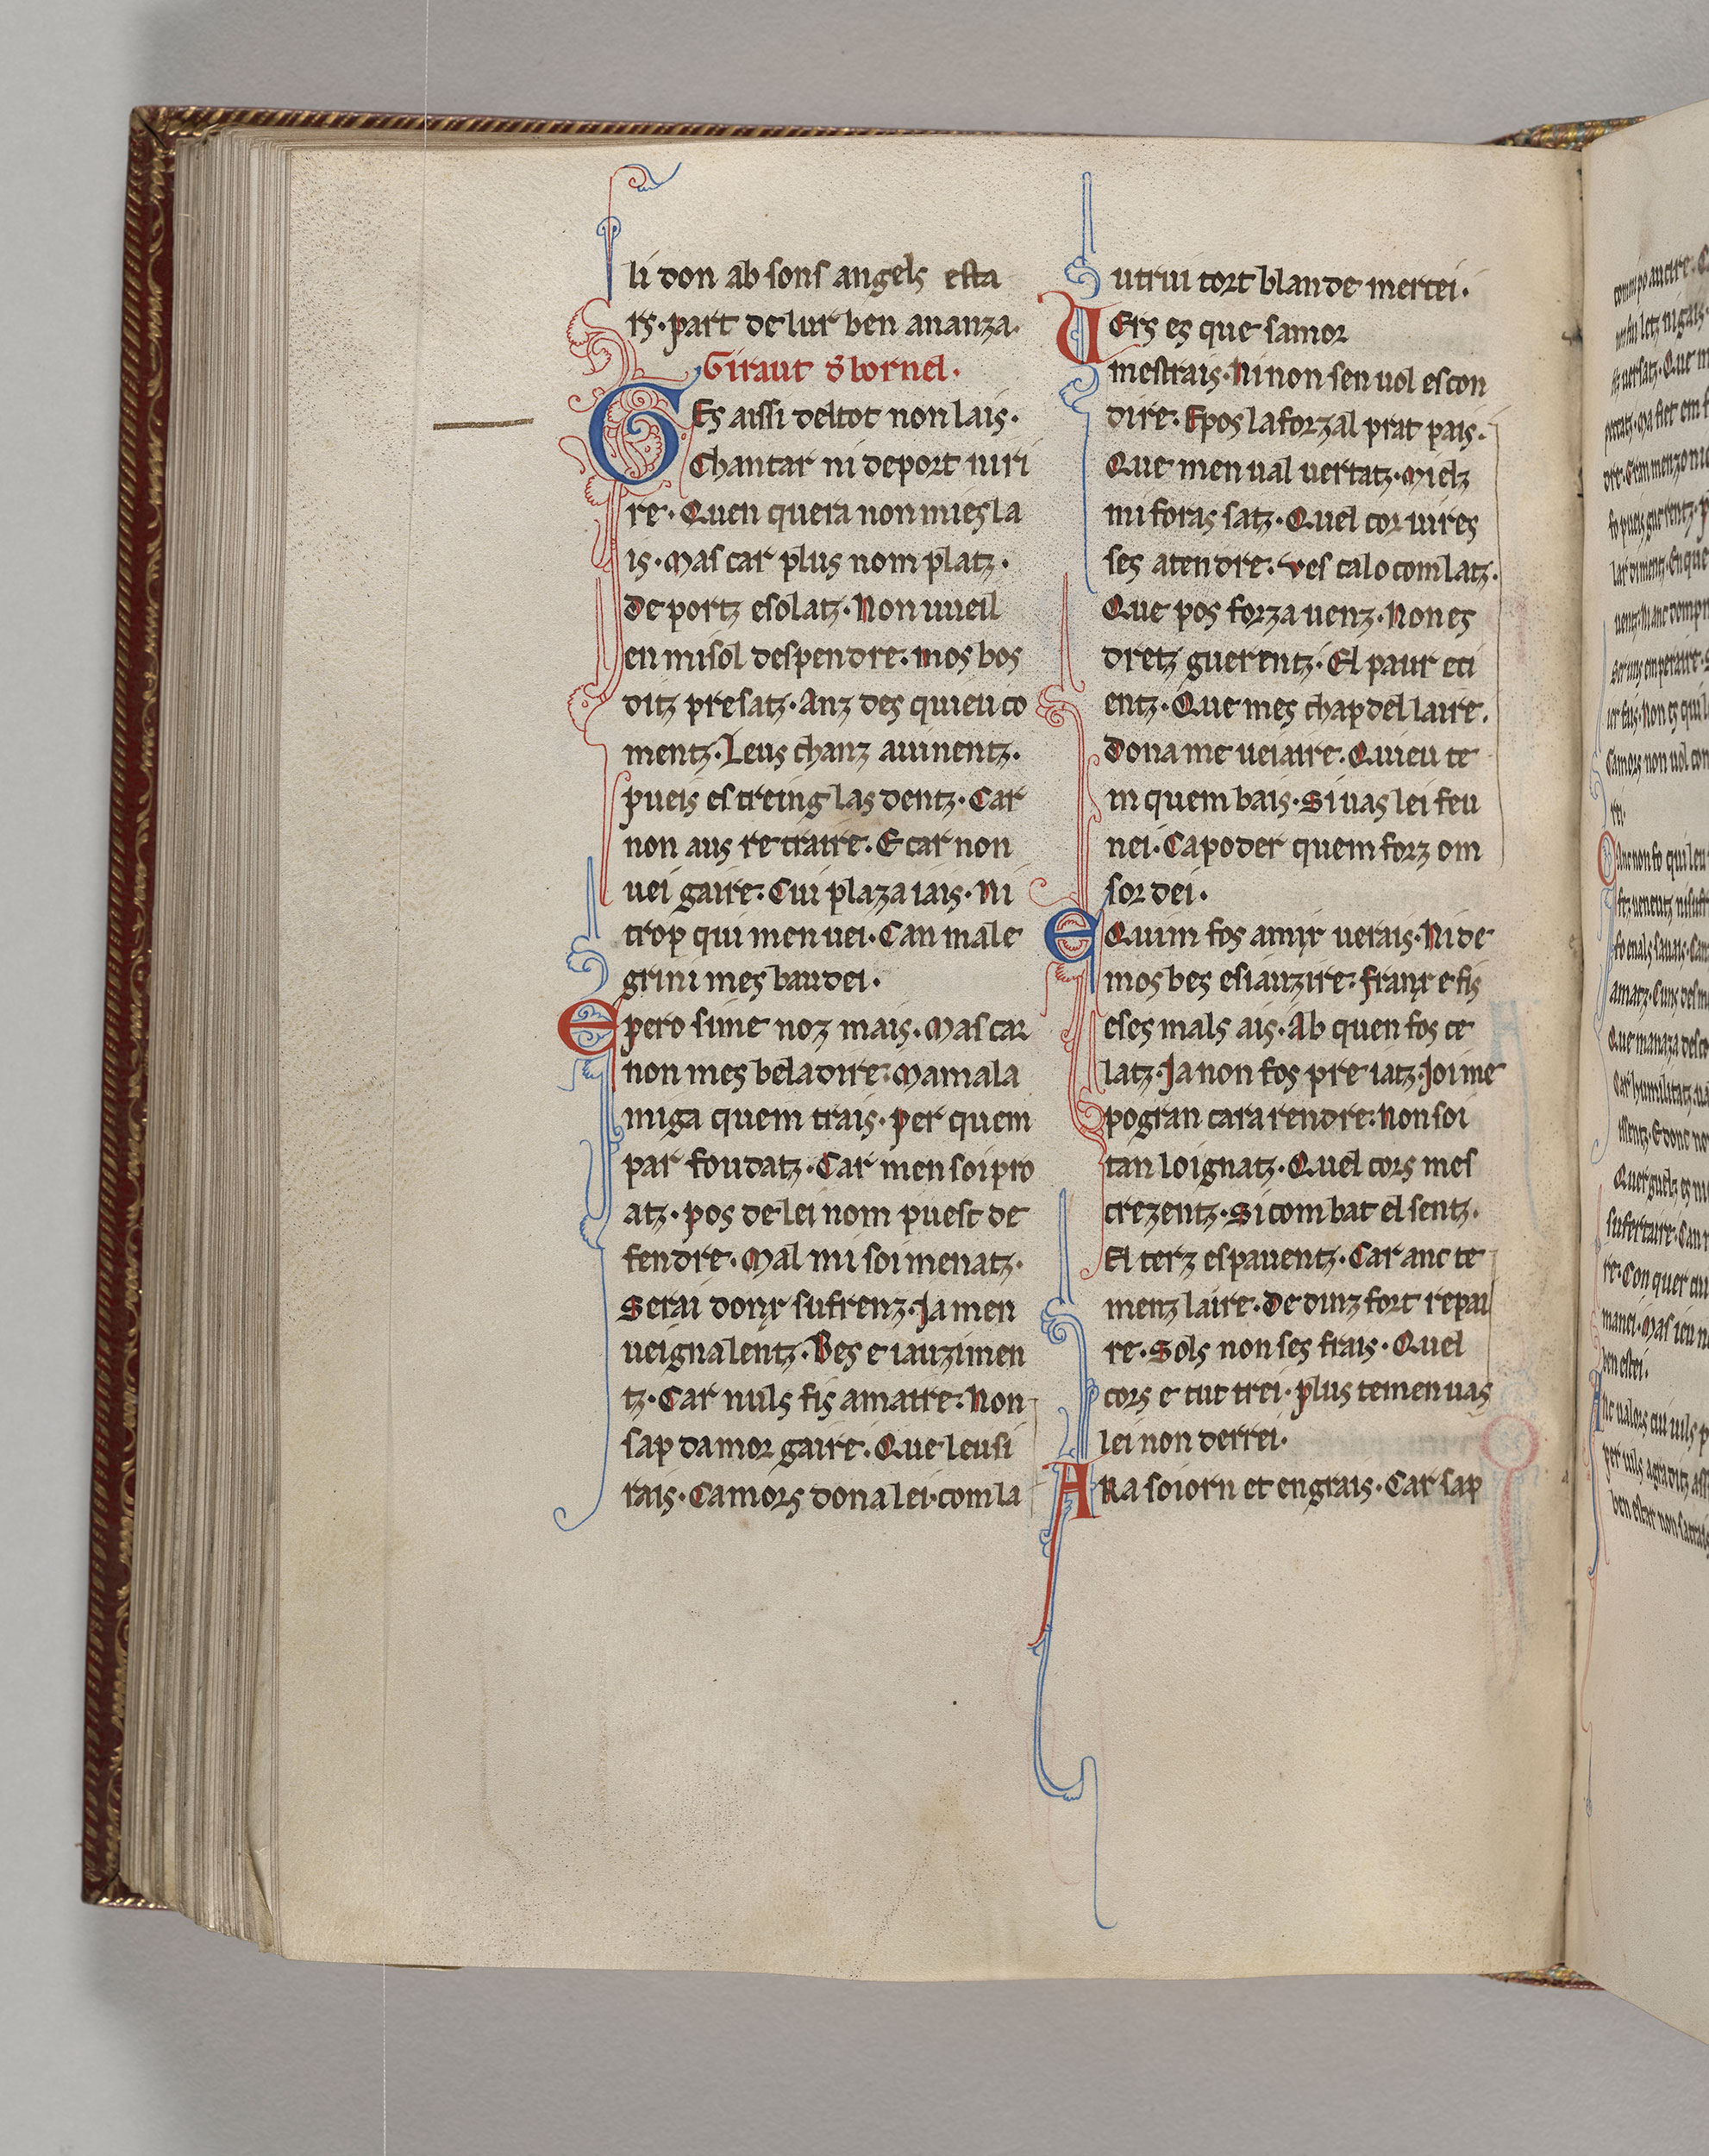 li don ab sons angels esta
rs·part de lur ben ananza·
Giraut d̄ bornel·
GEs aissi deltot non lais·
Chantar ni deport niri
re· Quen quera non mies la
is·Mas car plus nom platz·
de portz esolatz·Non uueil
en misol despendre·mos bos
ditz presatz·Anz des quieu co
mentz·Leus chanz auinentz·
pueis estreing las dentz·Car
non aus retraire·E car non
uei gaire·Cui plaza iais·Ni
trop qui men uei·Can male
grini mes baudei·
Epero sime noz mais·Mas car
non mes bela dire·Mamala
miga quem trais·per quem
par foudatz·Car men soi pro
atz·pos de lei nom puesc de
fendre·Mal mi soi menatz·
Serai donx sufrenz·Ja men
ueignalentz·Bes e iauzimen
tz·Car nuls fis amaire·Non
sap damor gaire·Que leusi
rais·Camors dona lei·comla
utrui tort blan de mercei·
UErs es que samor
mestrais·Ni non sen uol escon
dire·Epos laforzal prat pais·
Que men ual uertatz·Mielz
mi foras satz·Quel cor uires
ses atendre·Ves calo com latz·
Que pos forza uenz·Non es
dretz guerentz·El paur eci
entz·Que mes chapdellaire·
Dona me ueiaire·Quieu te
m quem bais·Si uas lei feu
nei·Capoder quem forz om
sor dei·
EQuim fos amix uerais·Ni de
mos bes esiauzire·franx e fis
eses mals ais·Ab quen fos ce
latz·Ja non fos pre iatz·Joi me
pogran cara rendre·Non soi
tan loignatz·Quel cors mes
crezentz·Si com bat el sentz·
El terz espauentz·Car anc te
menz laire·De dinz fort repai
re·Sols non ses frais·Quel
cors e tut trei·plus temen uas
lei non derrei·
ARa soiorn et engrais·Car sap